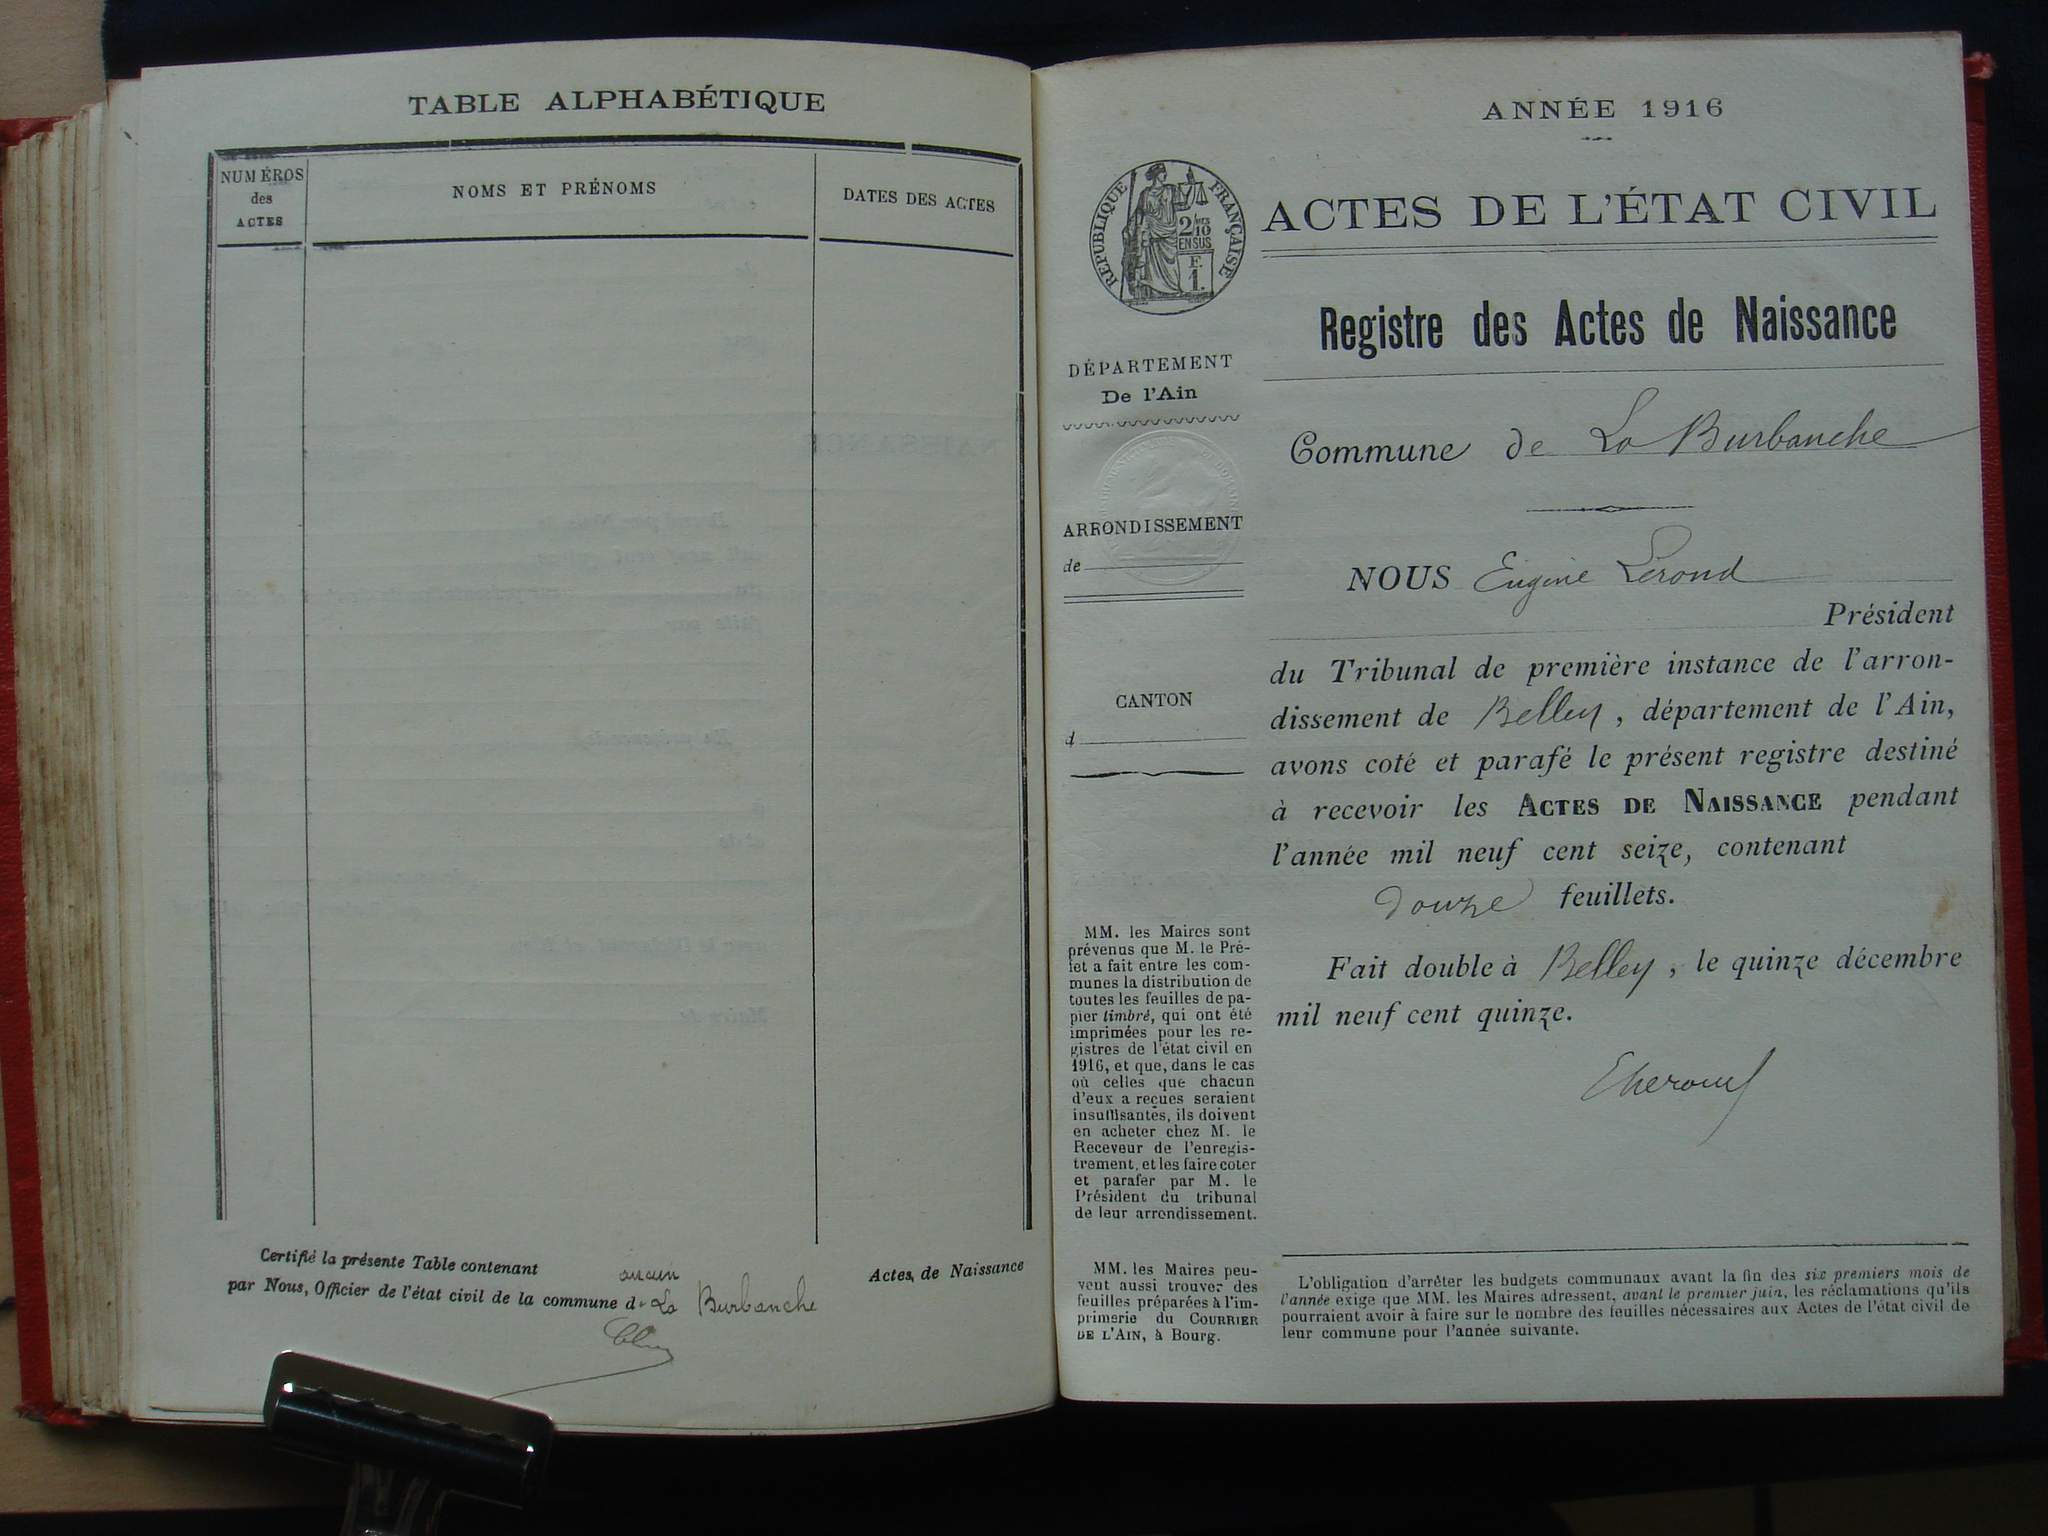 TABLE ALPHABÉTIQUE
NUMÉROS
des
ACTES
NOMS ET PRÉNOMS
DATES DES ACTES
Certifié la présente Table contenant aucun Actes de Naissance
par Nous, Officier de l'état civil de la commune de La Burbanche
ANNÉE 1916
RÉPUBLIQUE FRANÇAISE
2/10
EN SUS
F.
1.
ACTES DE L'ÉTAT CIVIL
Registre des Actes de Naissance
DÉPARTEMENT
De l'Ain
Commune de La Burbanche
ARRONDISSEMENT
de
NOUS Eugène
Président
du Tribunal de première instance de l'arron-
dissement de Belley, département de l'Ain,
avons coté et parafé le présent registre destiné
à recevoir les ACTES DE NAISSANCE pendant
l'année mil neuf cent seize, contenant
douze feuillets.
Fait double à Belley, le quinze décembre
mil neuf cent quinze.
CANTON
d
MM. les Maires sont
prévenus que M. le Pré-
fet a fait entre les com-
munes la distribution de
toutes les feuilles de pa-
pier timbré, qui ont été
imprimées pour les re-
gistres de l'état civil en
1916, et que, dans le cas
où celles que chacun
d'eux a reçues seraient
insuffisantes, ils doivent
en acheter chez M. le
Receveur de l'enregis-
trement, et les faire coter
et parafer par M. le
Président du tribunal
de leur arrondissement.
MM. les Maires peu-
vent aussi trouver des
feuilles préparées à l'im-
primerie du COURRIER
DE L'AIN, à Bourg.
L'obligation d'arrêter les budgets communaux avant la fin des six premiers mois de
l'année exige que MM. les Maires adressent, avant le premier juin, les réclamations qu'ils
pourraient avoir à faire sur le nombre des feuilles nécessaires aux Actes de l'état civil de
leur commune pour l'année suivante.